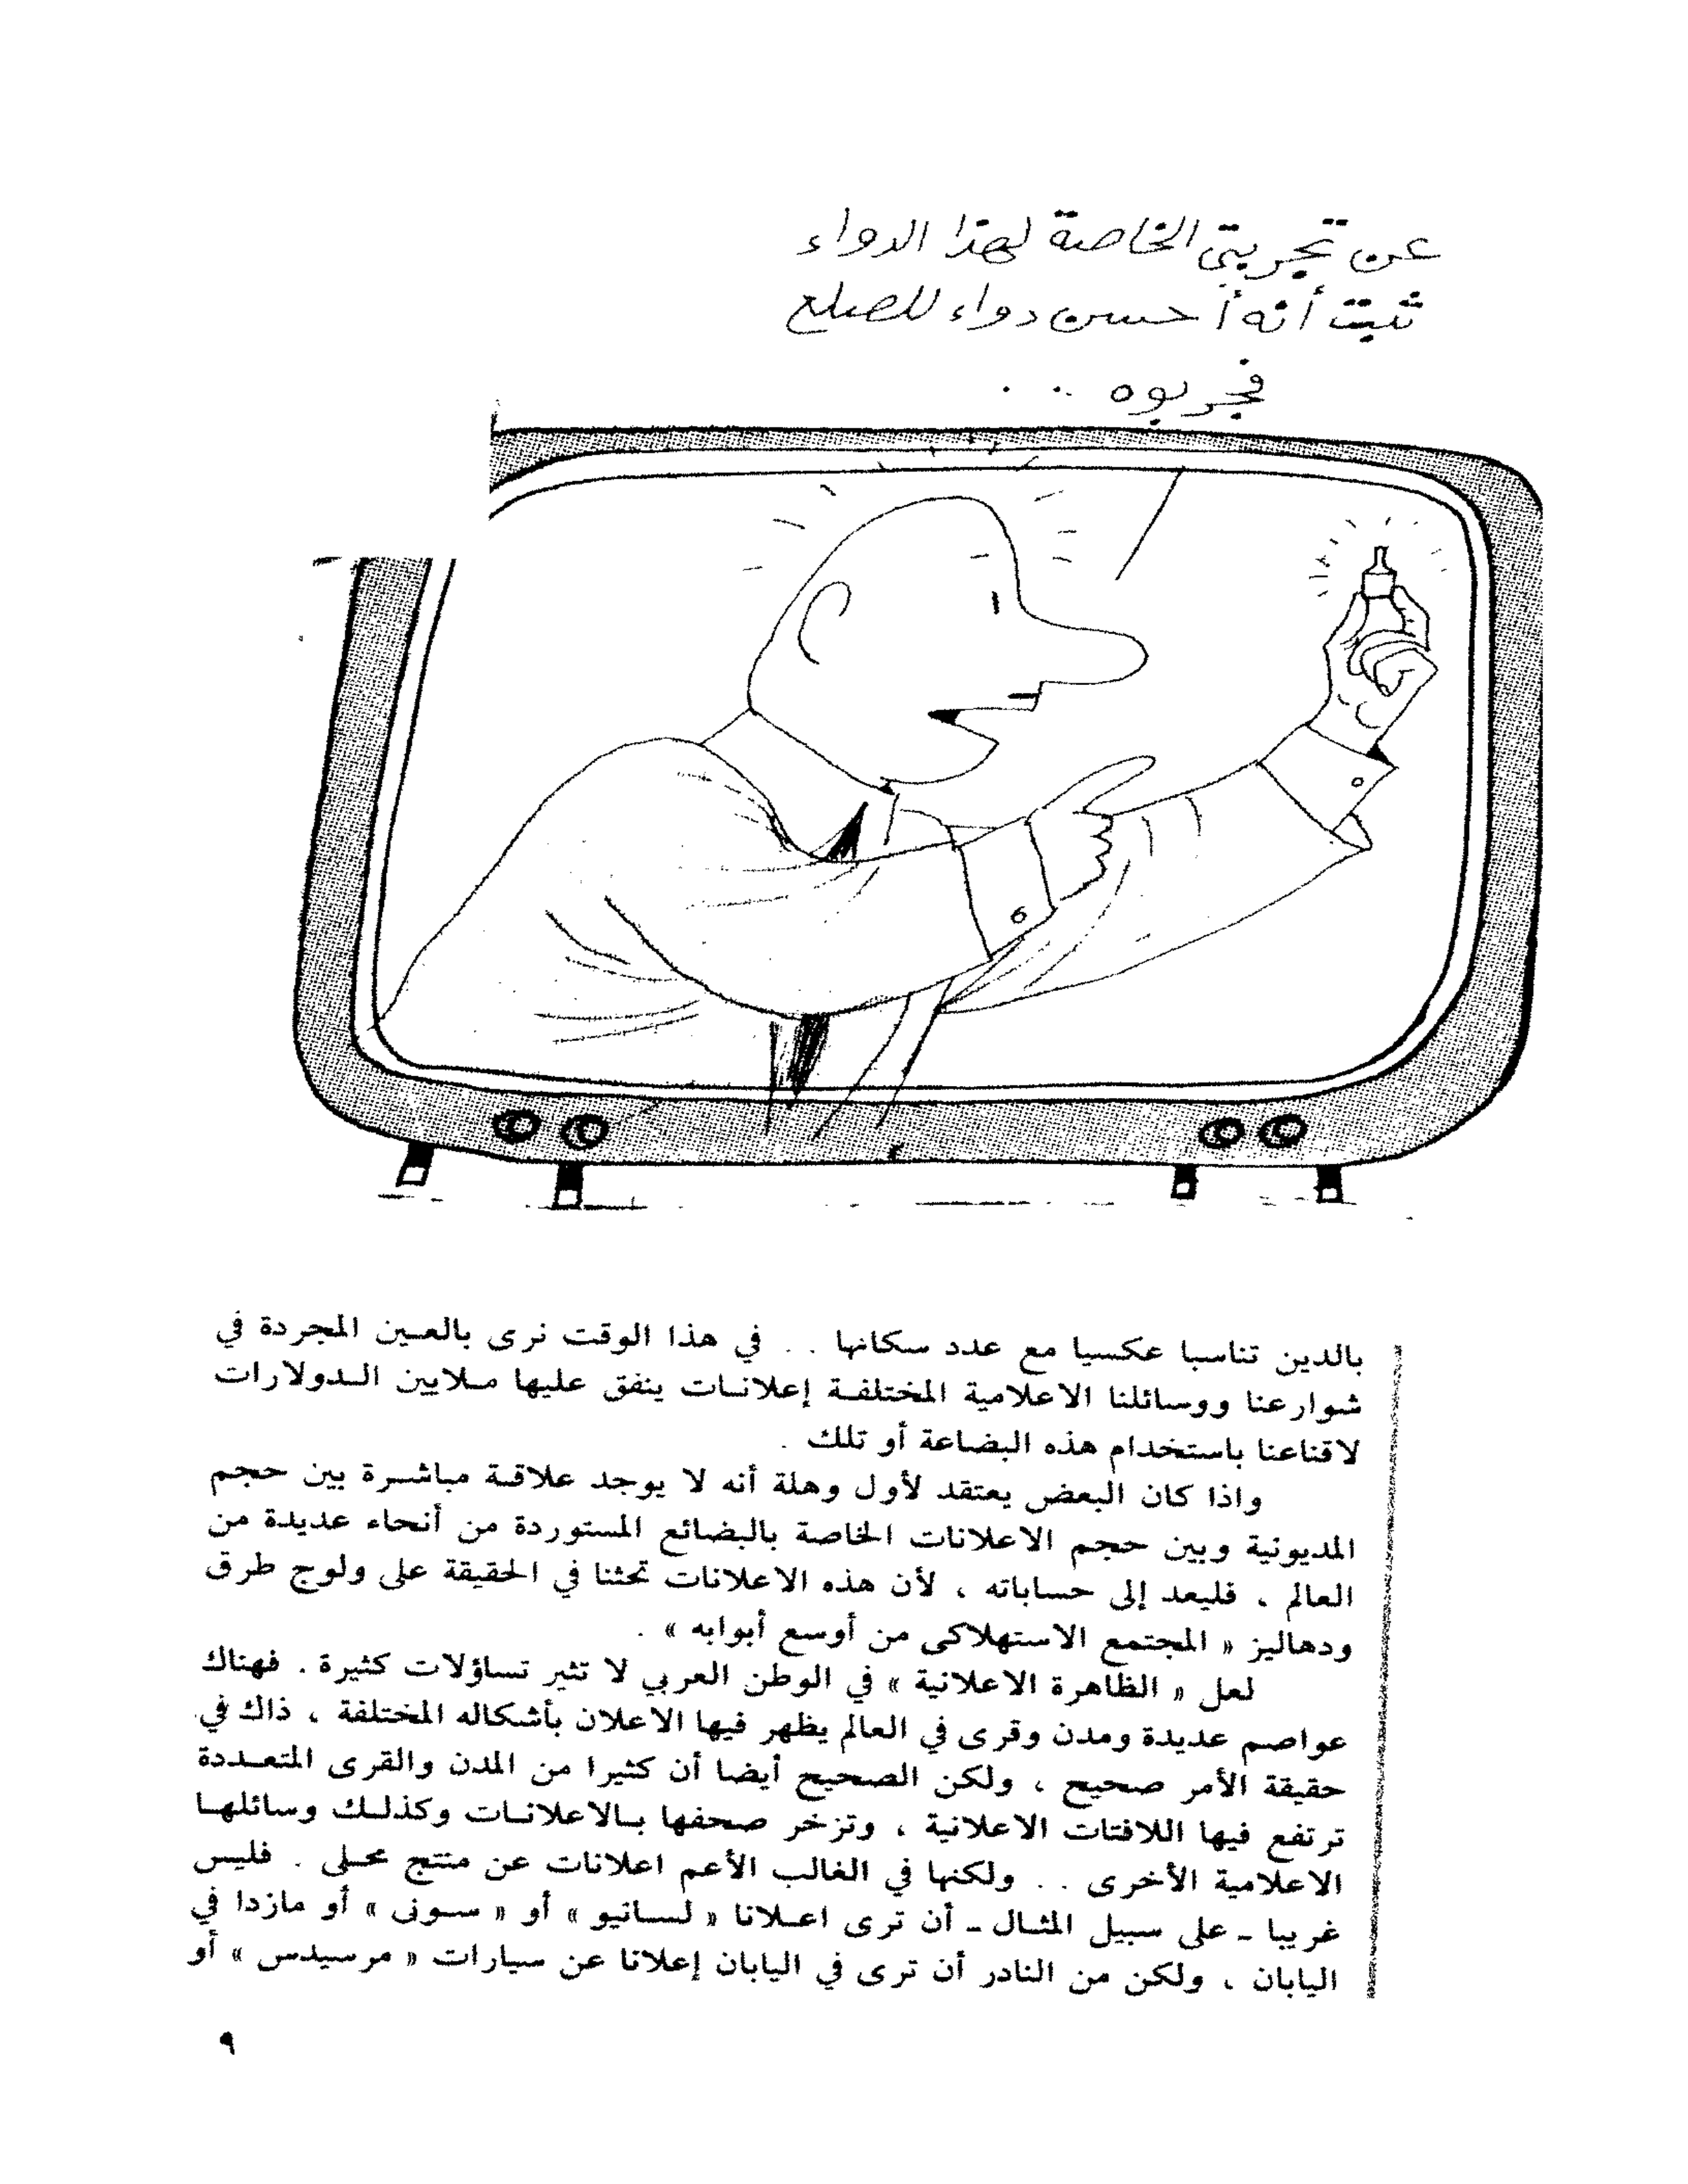 عن تجربتي الخاصة لهذا الدواء
ثبت أنه أحسن دواء للصلع
فجربوه . .
بالدين تناسبا عكسيا مع عدد سكانها . . في هذا الوقت نرى بالعين المجردة في
شوارعنا ووسائلنا الاعلامية المختلفة إعلانات ينفق عليها ملايين الدولارات
لاقناعنا باستخدام هذه البضاعة أو تلك .
واذا كان البعض يعتقد لأول وهلة أنه لا يوجد علاقة مباشرة بين حجم
المديونية وبين حجم الاعلانات الخاصة بالبضائع المستوردة من أنحاء عديدة من
العالم ، فليعد إلى حساباته ، لأن هذه الاعلانات تحثنا في الحقيقة على ولوج طرق
ودهاليز « المجتمع الاستهلاكى من أوسع أبوابه » .
لعل « الظاهرة الاعلانية » في الوطن العربي لا تثير تساؤلات كثيرة . فهناك
عواصم عديدة ومدن وقرى في العالم يظهر فيها الاعلان بأشكاله المختلفة ، ذاك في
حقيقة الأمر صحيح ، ولكن الصحيح أيضا أن كثيرا من المدن والقرى المتعددة
ترتفع فيها اللافتات الاعلانية ، وتزخر صحفها بالاعلانات وكذلك وسائلها
الاعلامية الأخرى . . ولكنها في الغالب الأعم اعلانات عن منتج محلى . فليس
غريبا - على سبيل المثال - أن ترى اعلانا « لسانيو » أو « سونى » أو مازدا في
اليابان ، ولكن من النادر أن ترى في اليابان إعلانا عن سيارات « مرسيدس » أو
٩